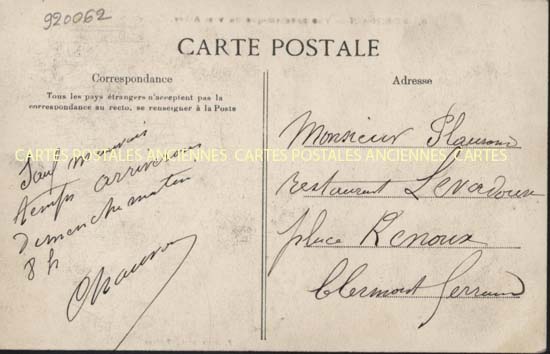 920062
CARTE POSTALE
Correspondance
Tous les pays étrangers n'acceptent pas la
correspondance au recto, se renseigner à la Poste
Adresse
CARTES POSTALES ANCIENNES CARTES POSTALES ANCIENNES CARTES POSTALES ANCIENNES
Sauf mauvais
temps arriverons
Dimanche matin
8 h
Monsieur
restaurant Levadoux
place Renoux
Clermont Ferrand